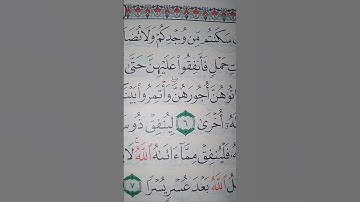 سَكَنتُم مِّن وُجْدِكُمْ وَلَا
حَمْلٍ فَأَنفِقُوا۟ عَلَيْهِنَّ حَتَّىٰ
أُجُورَهُنَّ ۖ وَأْتَمِرُوا۟
أُخْرَىٰ ٦ لِيُنفِقْ ذُو
فَلْيُنفِقْ مِمَّآ ءَاتَىٰهُ ٱللَّهُ ۚ لَا
ٱللَّهُ بَعْدَ عُسْرٍ يُسْرًا ٧